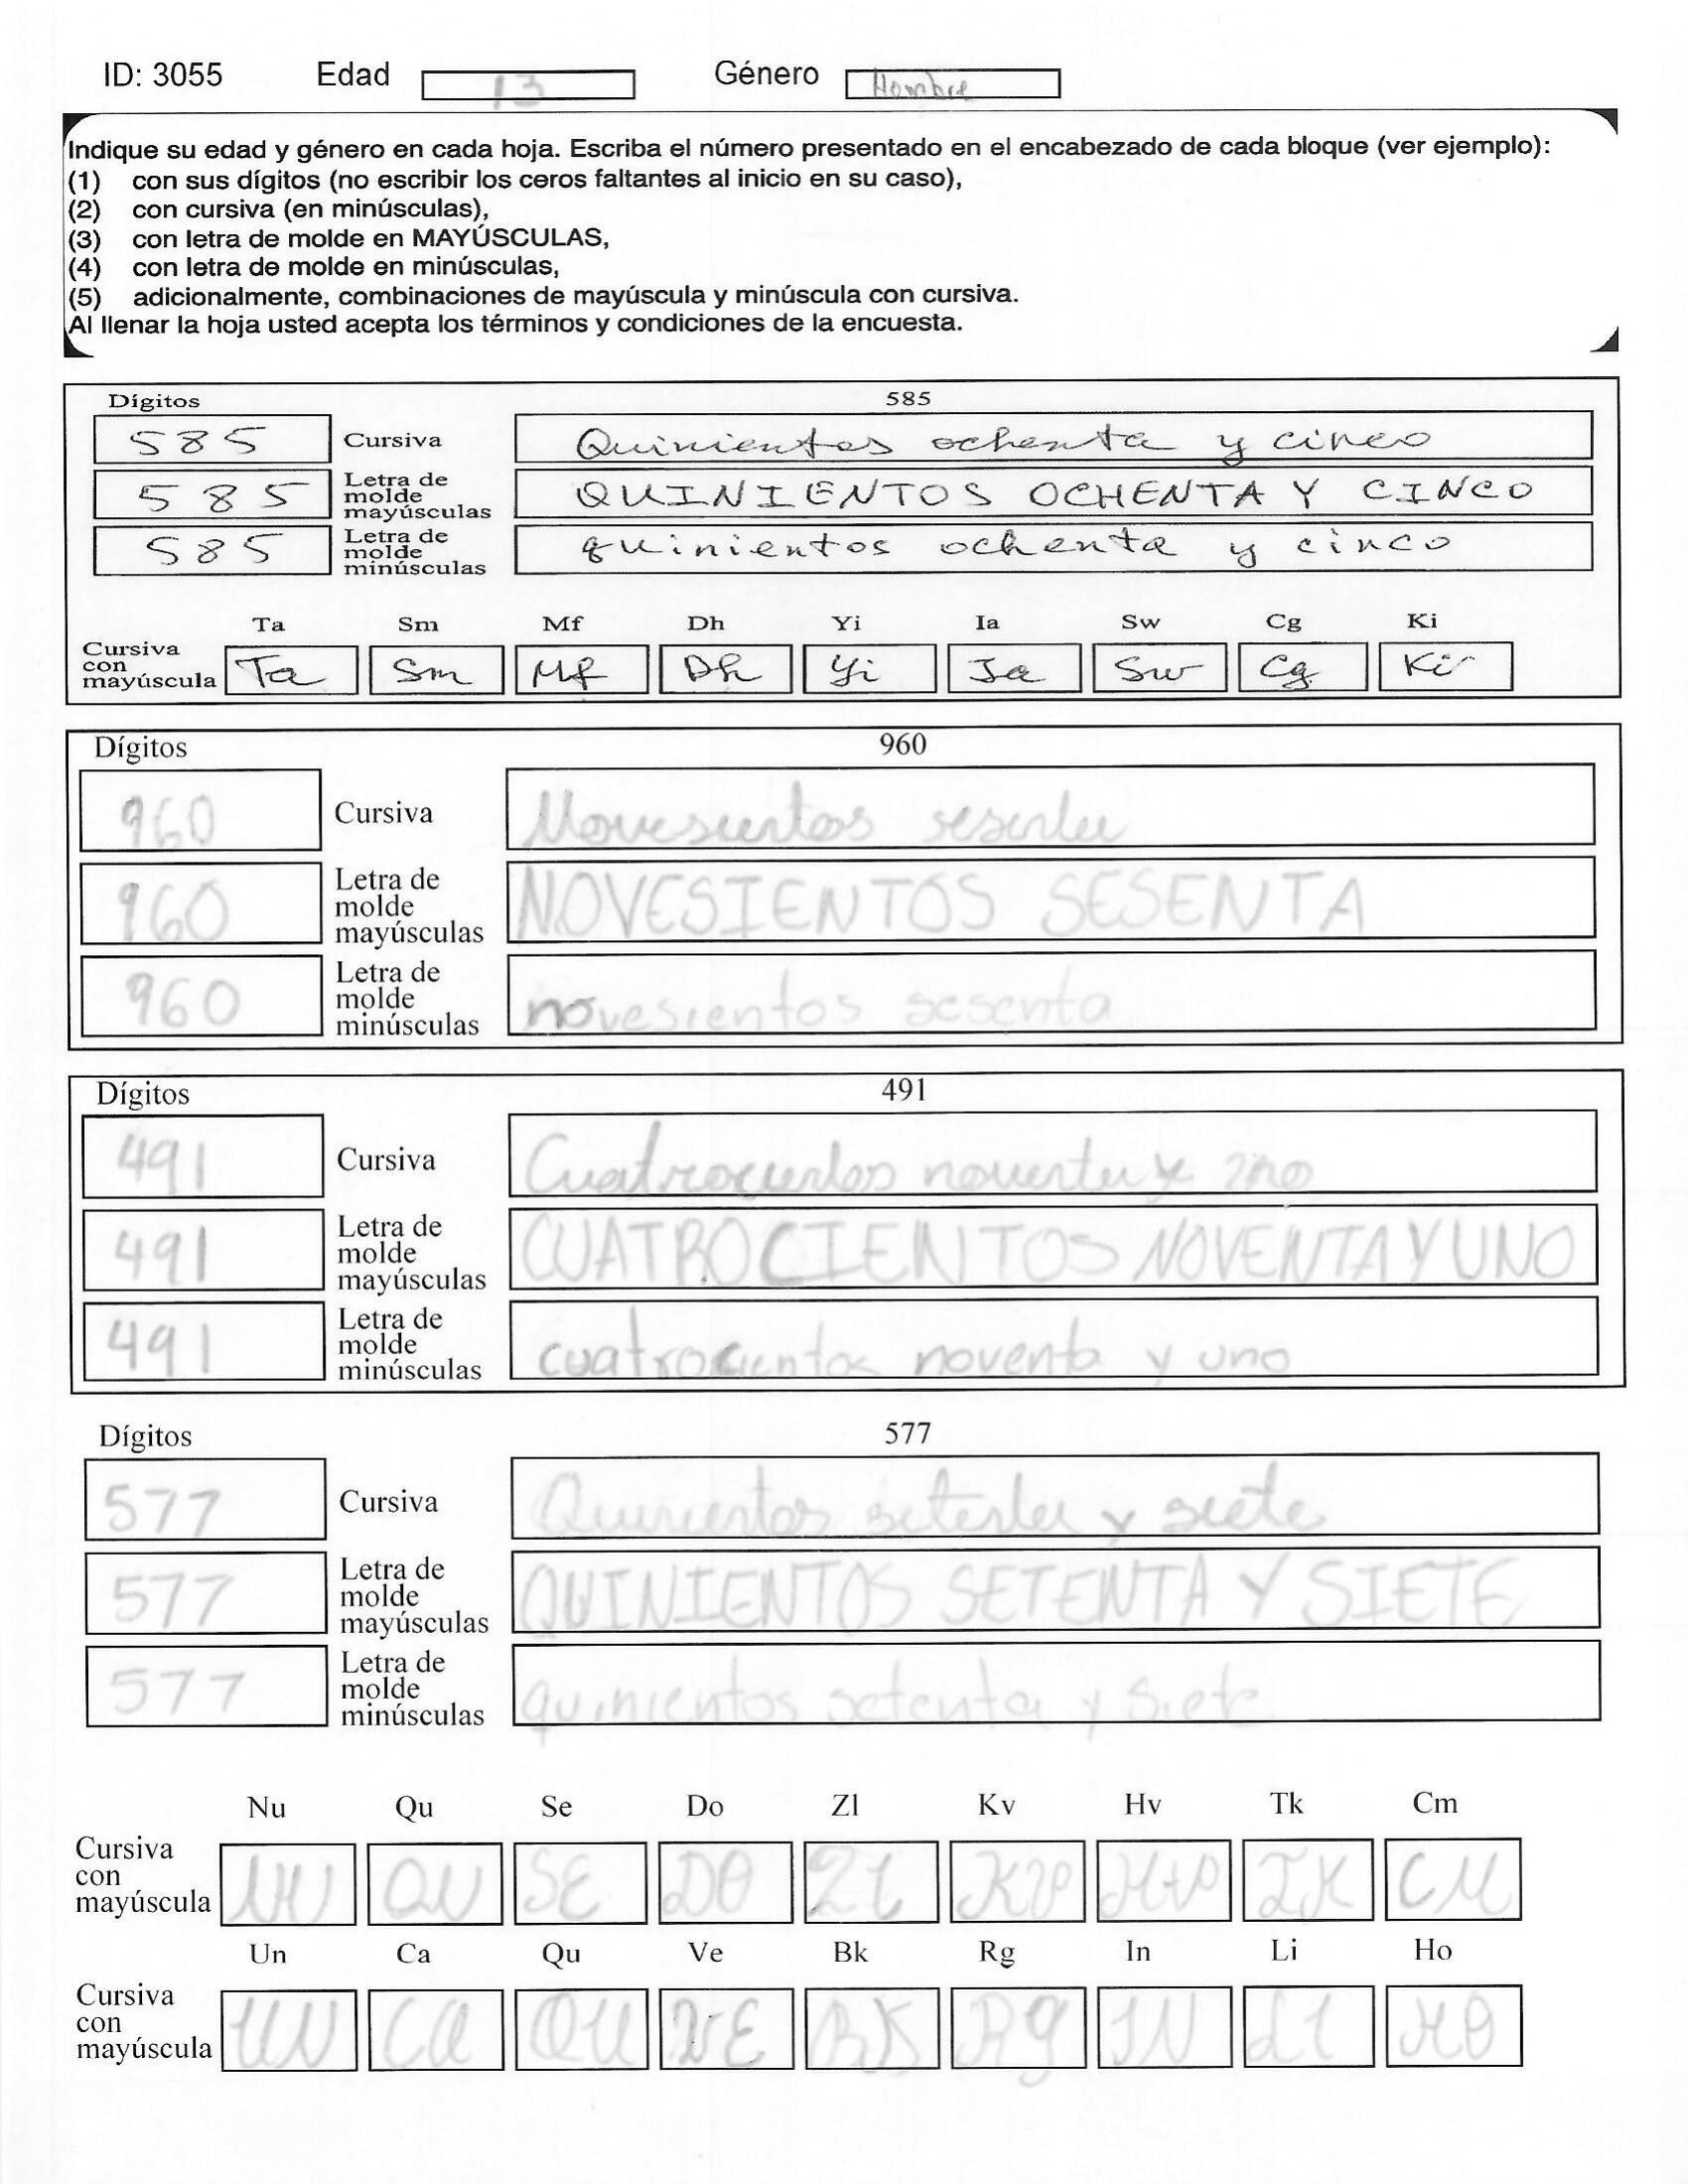 ID: 3055 Edad 13 Género Hombre
Indique su edad y género en cada hoja. Escriba el número presentado en el encabezado de cada bloque (ver ejemplo):
(1) con sus dígitos (no escribir los ceros faltantes al inicio en su caso),
(2) con cursiva (en minúsculas),
(3) con letra de molde en MAYÚSCULAS,
(4) con letra de molde en minúsculas,
(5) adicionalmente, combinaciones de mayúscula y minúscula con cursiva.
Al llenar la hoja usted acepta los términos y condiciones de la encuesta.
Dígitos 585
585 Cursiva Quinientos ochenta y cinco
585 Letra de molde mayúsculas QUINIENTOS OCHENTA Y CINCO
585 Letra de molde minúsculas quinientos ochenta y cinco
Ta Sm Mf Dh Yi Ia Sw Cg Ki
Cursiva con mayúscula Ta Sm Mf Dh Yi Ia Sw Cg Ki
Dígitos 960
960 Cursiva Novesientos sesenta
960 Letra de molde mayúsculas NOVESIENTOS SESENTA
960 Letra de molde minúsculas novesientos sesenta
Dígitos 491
491 Cursiva Cuatrocientos noventa y uno
491 Letra de molde mayúsculas CUATROCIENTOS NOVENTA Y UNO
491 Letra de molde minúsculas cuatrocientos noventa y uno
Dígitos 577
577 Cursiva Quinientos setenta y siete
577 Letra de molde mayúsculas QUINIENTOS SETENTA Y SIETE
577 Letra de molde minúsculas quinientos setenta y siete
Nu Qu Se Do Zl Kv Hv Tk Cm
Cursiva con mayúscula NU QU SE DO Zl Kv Hv TK CM
Un Ca Qu Ve Bk Rg In Li Ho
Cursiva con mayúscula UN Ca QU VE BK Rg IN LI HO